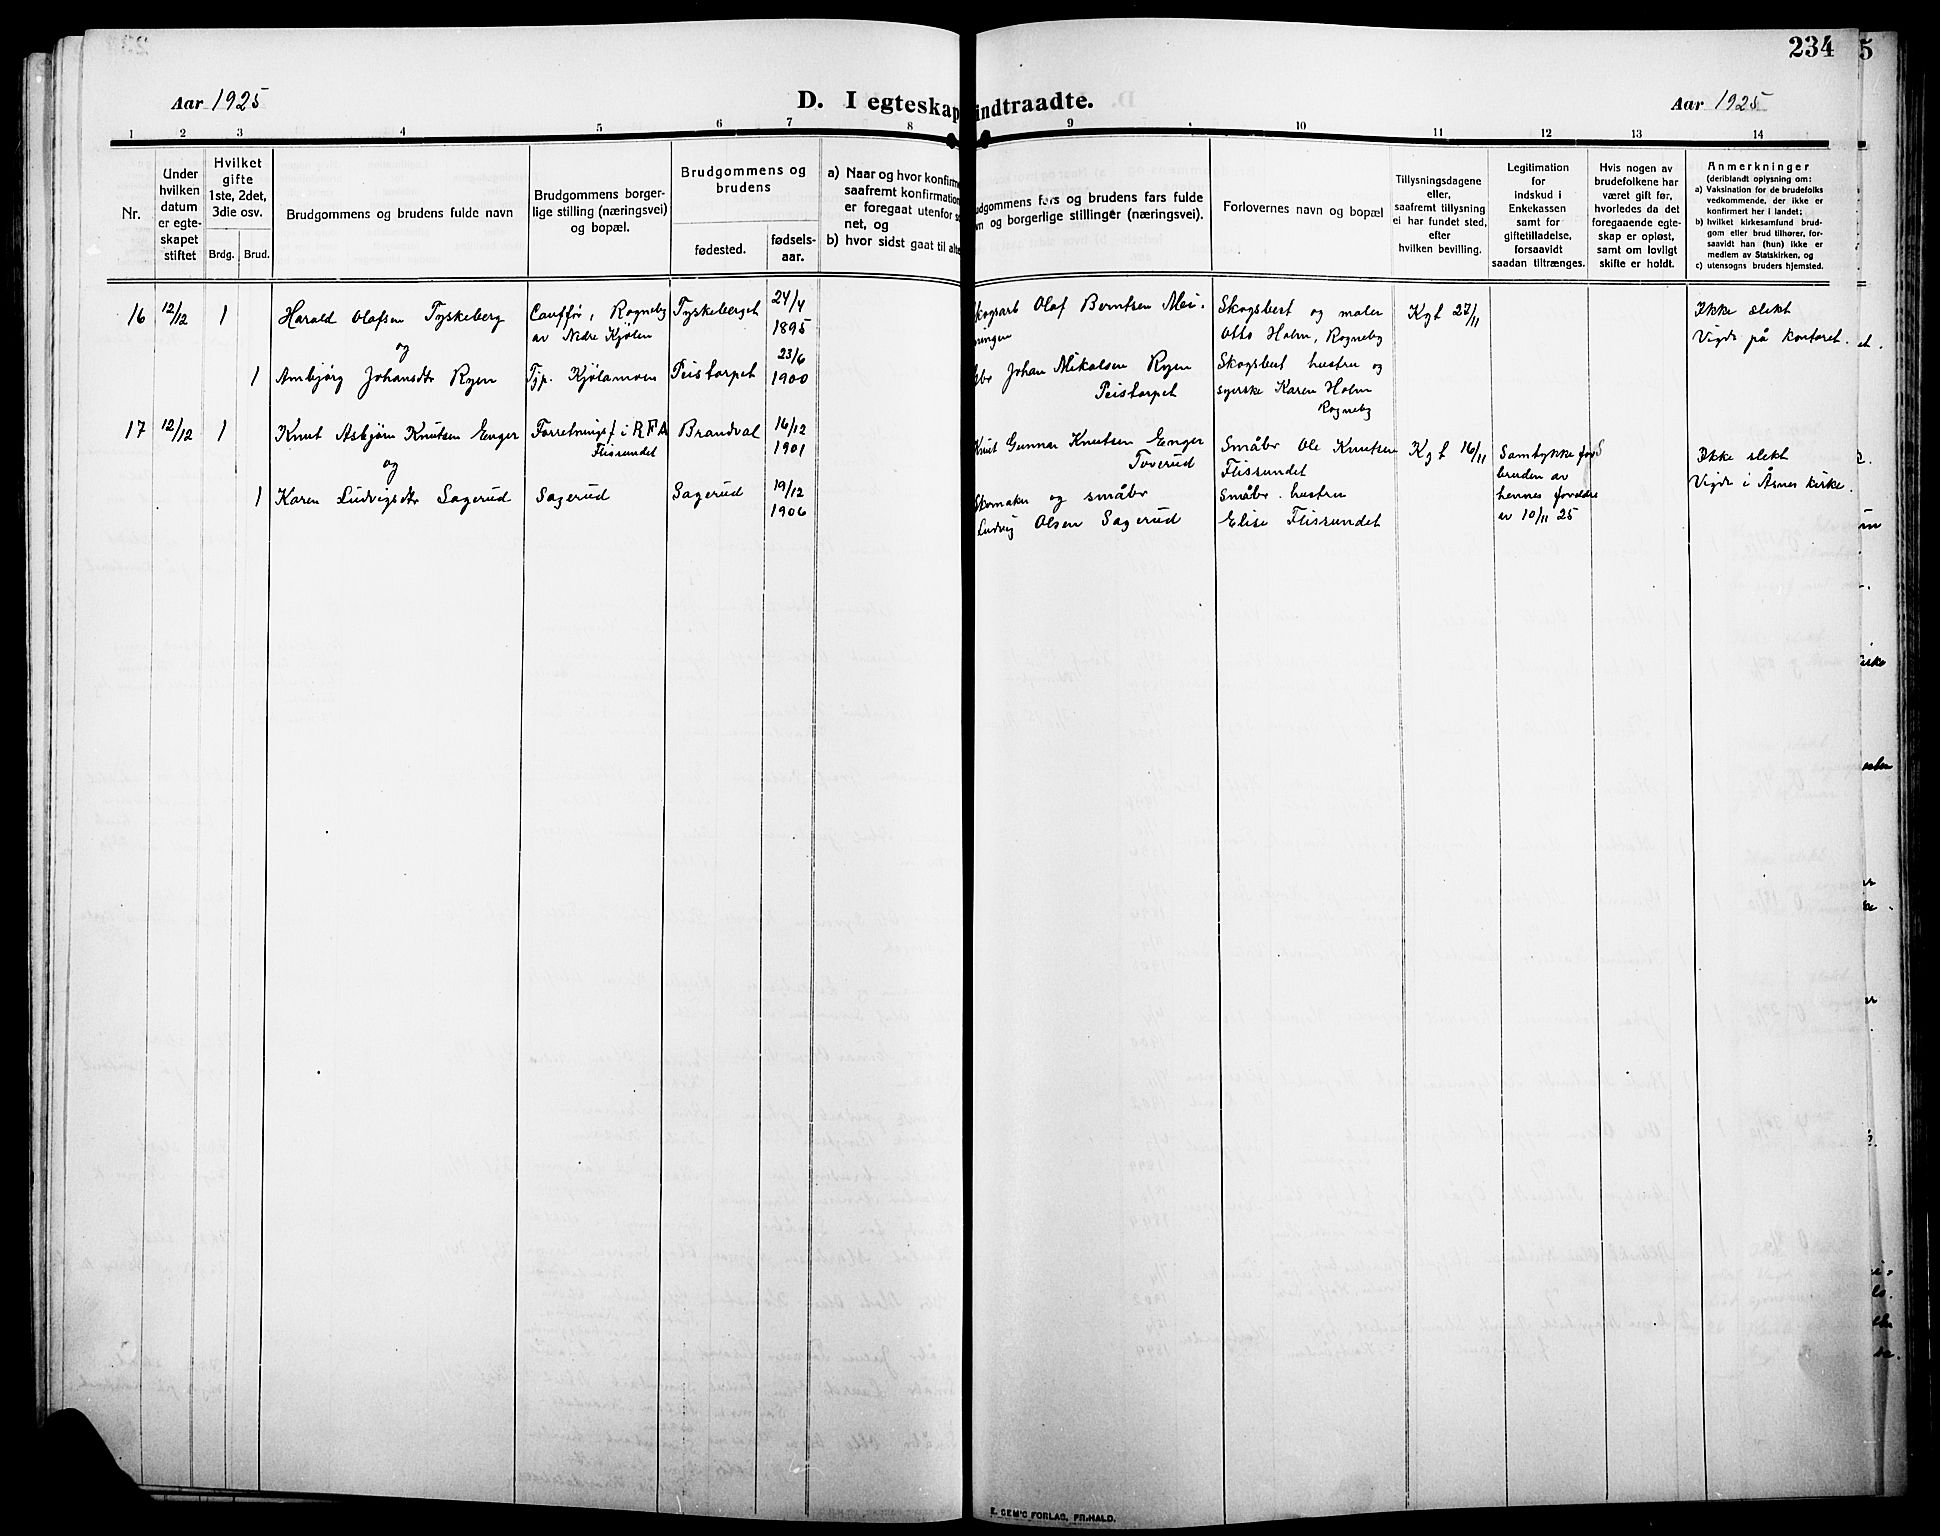 234
5
Aar 1925
D. I egteskap indtraadte.
Aar 1925
1 2 3 4 5 6 7 8 9 10 11 12 13 14
Nr.
Under
hvilken
datum
er egte-
skapet
stiftet
Hvilket
gifte
1ste, 2det,
3die osv.
Brdg. Brud.
Brudgommens og brudens fulde navn
Brudgommens borger-
lige stilling (næringsvei)
og bopæl.
Brudgommens og
brudens
fødested.
fødsels-
aar.
a) Naar og hvor konfirme
saafremt konfirmation
er foregaat utenfor so
net, og
b) hvor sidst gaat til alte
udgommens fars og brudens fars fulde
n og borgerlige stillinger (næringsvei).
Forlovernes navn og bopæl
Tillysningsdagene
eller,
saafremt tillysning
ei har fundet sted,
efter
hvilken bevilling.
Legitimation
for
indskud i
Enkekassen
samt for
giftetilladelse,
forsaavidt
saadan tiltrænges.
Hvis nogen av
brudefolkene har
været gift før,
hvorledes da det
foregaaende egte-
skap er opløst,
samt om lovligt
skifte er holdt.
Anmerkninger
(deriblandt oplysning om:
a) Vaksination for de brudefolks
vedkommende, der ikke er
konfirmert her i landet;
b) hvilket kirkesamfund brud-
gom eller brud tilhører, for-
saavidt han (hun) ikke er
medlem av Statskirken, og
c) utensogns bruders hjemsted.
16 12/12 1 Harald Olafsen Tyskeberg
og
1 Ambjørg Johansdtr Ryen
Cauffør, Rogneby
av Nedre Kjølen
Tjp. Kjølamoen
Tyskeberget
Peistorpet
24/4
1895
23/6
1900
Skogsarb Olaf Berntsen Mei-
ningen
Johan Mikalsen Ryen
Peistorpet
Skogsbest og maler
Otto Holm, Rogneby
Skogsbest hustru og
syerske Karen Holm
Rogneby
Kgt 27/11
Ikke slekt
Vigde på kontoret.
17 12/12 1 Knut Asbjørn Knutsen Enger
og
1 Karen Ludvigsdtr Sagerud
Forretningsf i RFA
Flissundet
Sagerud
Brandval
Sagerud
16/12
1901
19/12
1906
Knut Gunnar Knutsen Enger
Toverud
Skomaker og småbr
Ludvig Olsen Sagerud
Småbr Ole Knutsen
Flissundet
Småbr. hustru
Elise Flissundet
Kgt 16/11
Samtykke for
bruden av
hennes foreldre
av 10/11 25
Ikke slekt
Vigde i Åsnes kirke.
E. SEM'S FORLAG, FR.HALD.